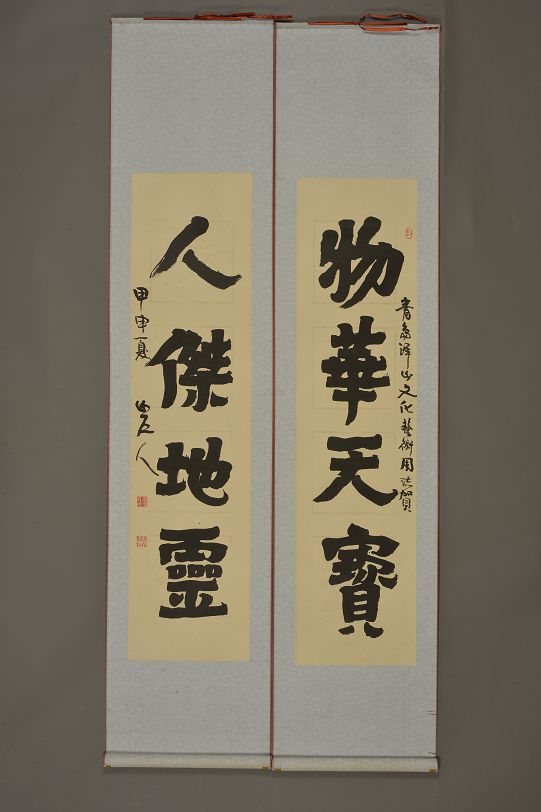 物華天寶
青島澤山文化藝術園誌賀
人傑地靈
甲申夏